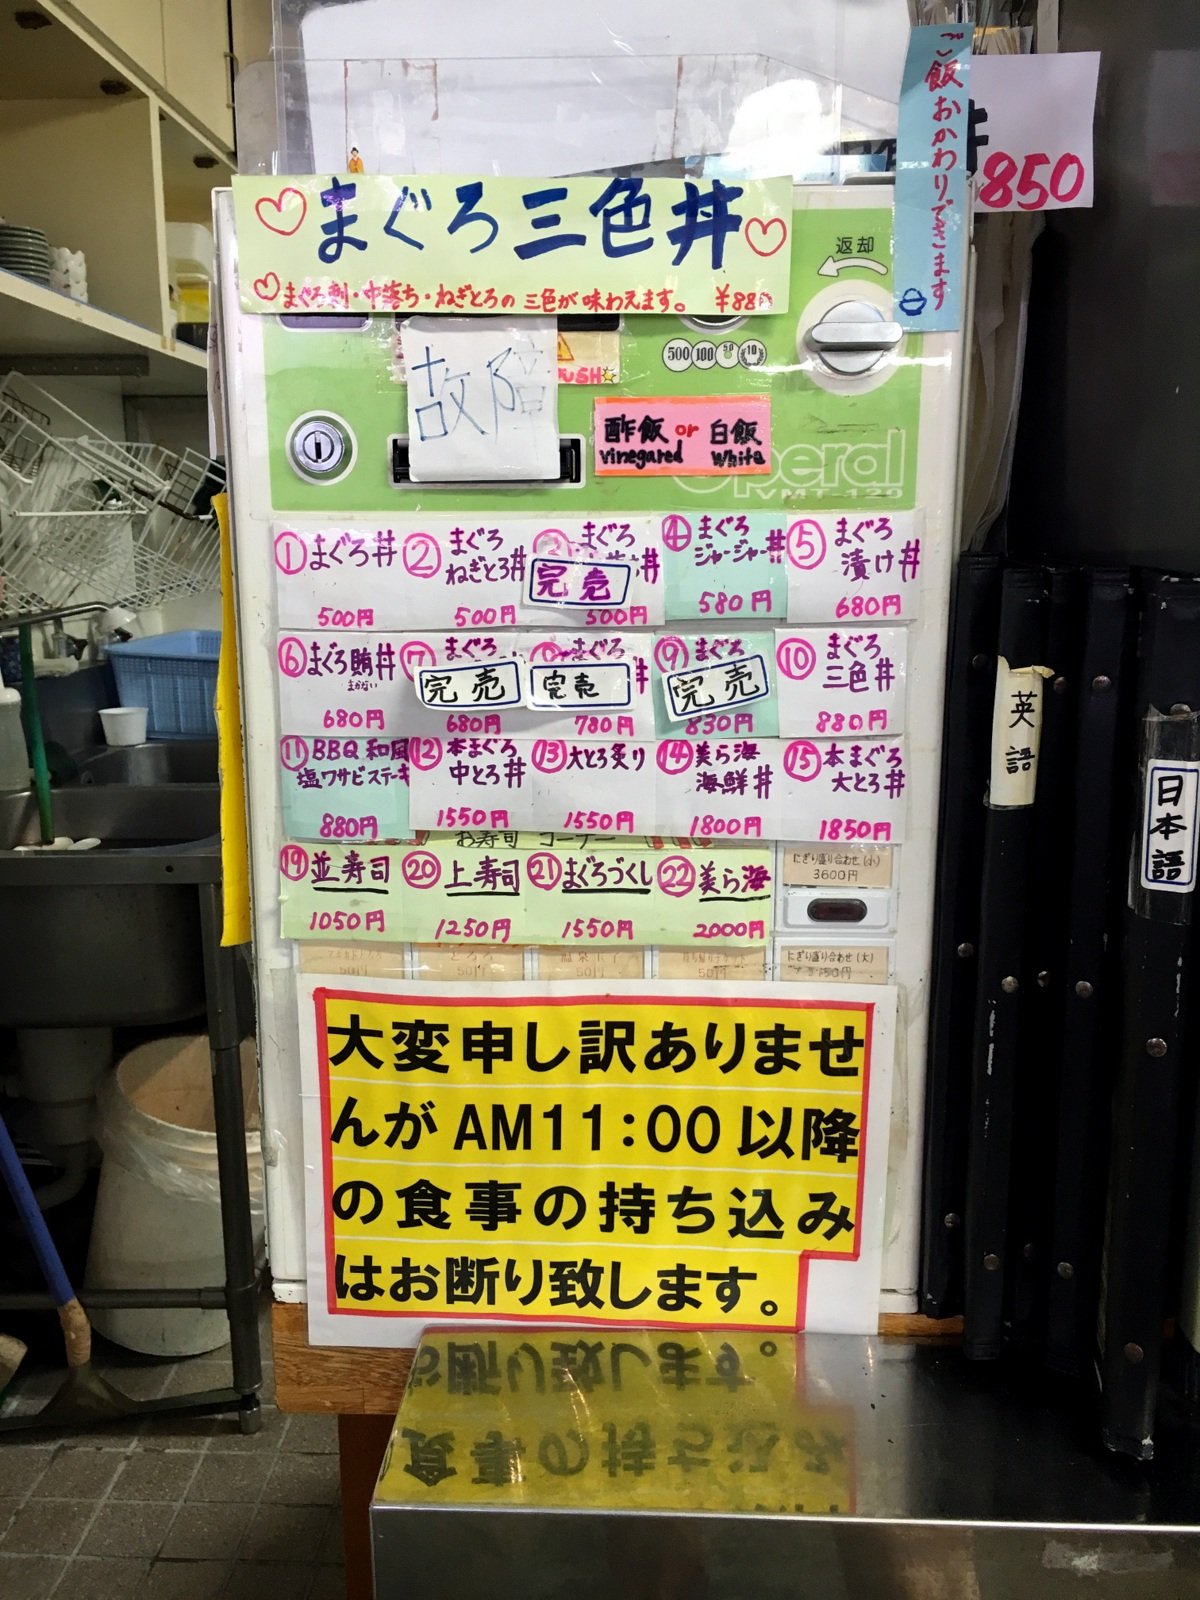 ご飯おかわりできます
850
まぐろ三色丼
まぐろ刺・中落ち・ねぎとろの 三色が味わえます。 ¥880
返却
500 100 50 10
故障
PUSH
酢飯 or 白飯
vinegared White
Operal
VMT-120
① まぐろ丼 500円
② まぐろ ねぎとろ丼 500円
③ まぐろ 丼 完売 500円
④ まぐろ ジャージャー丼 580円
⑤ まぐろ 漬け丼 680円
⑥ まぐろ賄丼 まかない 680円
⑦ まぐろ 完売 680円
まぐろ 丼 完売 780円
⑨ まぐろ 完売 830円
⑩ まぐろ 三色丼 880円
⑪ BBQ和風 塩ワサビステーキ 880円
⑫ 本まぐろ 中とろ丼 1550円
⑬ 大とろ炙り 1550円
⑭ 美ら海 海鮮丼 1800円
⑮ 本まぐろ 大とろ丼 1850円
お寿司 コーナー
⑲ 並寿司 1050円
⑳ 上寿司 1250円
㉑ まぐろづくし 1550円
㉒ 美ら海 2000円
にぎり盛り合わせ(小)
3600円
とろろ 50円
温泉玉子 50円
50円
50円
にぎり盛り合わせ(大)
大変申し訳ありませ
んが AM11:00 以降
の食事の持ち込み
はお断り致します。
英語
日本語